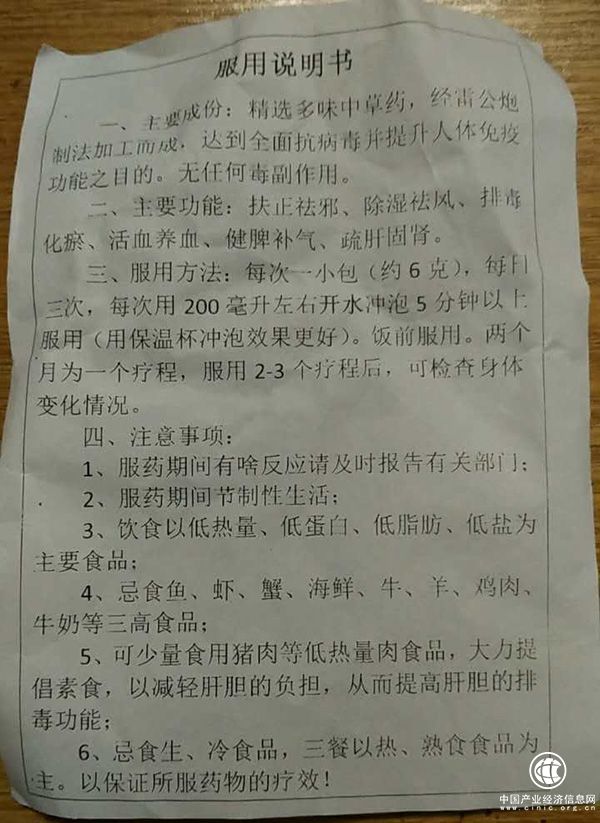 服用说明书
一、主要成份：精选多味中草药，经雷公炮
制法加工而成，达到全面抗病毒并提升人体免疫
功能之目的。无任何毒副作用。
二、主要功能：扶正祛邪、除湿祛风、排毒
化瘀、活血养血、健脾补气、疏肝固肾。
三、服用方法：每次一小包（约6克），每日
三次，每次用200毫升左右开水冲泡5分钟以上
服用（用保温杯冲泡效果更好）。饭前服用。两个
月为一个疗程，服用2-3个疗程后，可检查身体
变化情况。
四、注意事项：
1、服药期间有啥反应请及时报告有关部门；
2、服药期间节制性生活；
3、饮食以低热量、低蛋白、低脂肪、低盐为
主要食品；
4、忌食鱼、虾、蟹、海鲜、牛、羊、鸡肉、
牛奶等三高食品；
5、可少量食用猪肉等低热量肉食品，大力提
倡素食，以减轻肝胆的负担，从而提高肝胆的排
毒功能；
6、忌食生、冷食品，三餐以热、熟食食品为
主。以保证所服药物的疗效！
中国产业经济信息网
www.cinic.org.cn